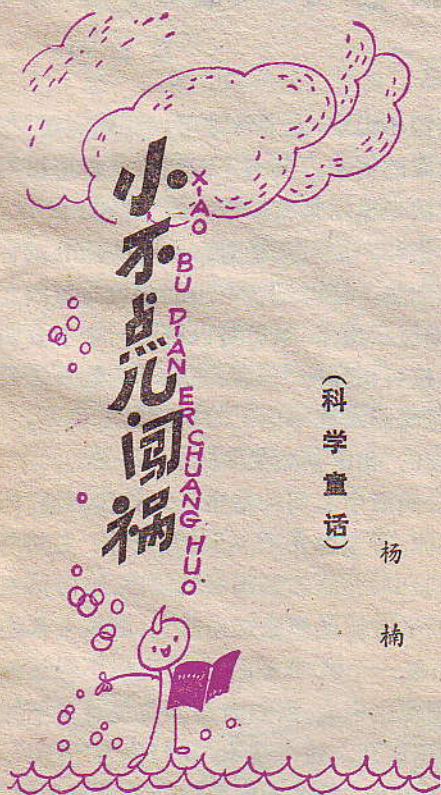 小不点儿闯祸
XIAO BU DIAN ER CHUANG HUO
(科学童话)
杨楠